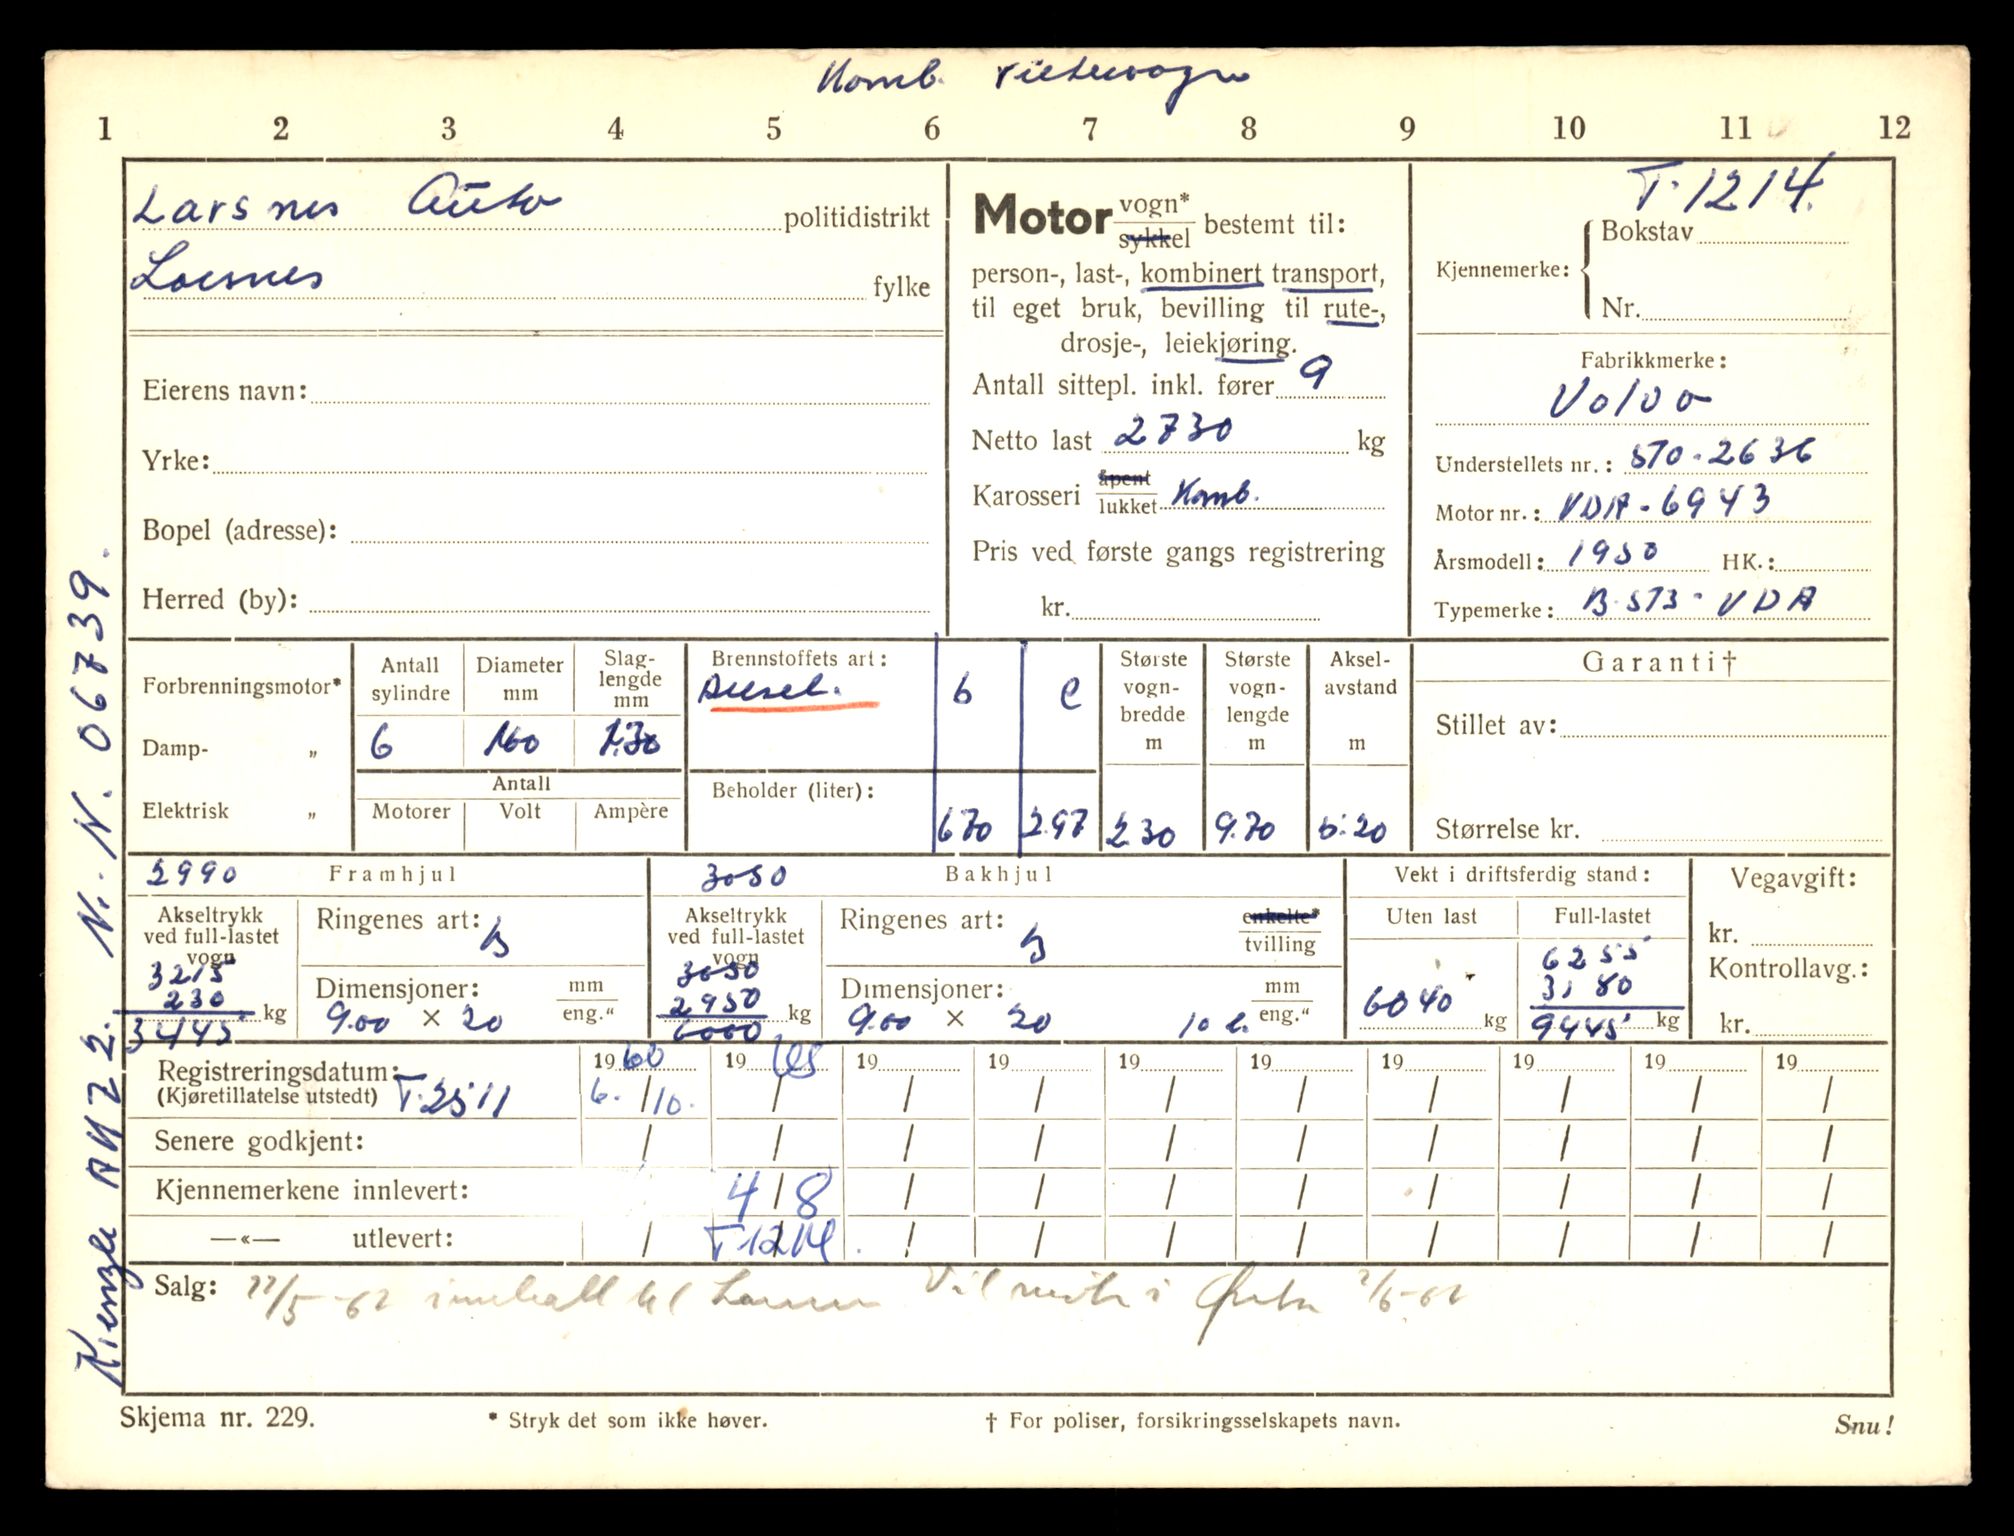 Komb. rutevogn
1 2 3 4 5 6 7 8 9 10 11 12
Larsnes Auto politidistrikt
Larsnes fylke
Eierens navn:
Yrke:
Bopel (adresse):
Herred (by):
Motor vogn* sykkel bestemt til:
person-, last-, kombinert transport,
til eget bruk, bevilling til rute-,
drosje-, leiekjøring.
Antall sittepl. inkl. fører 9
Netto last 2730 kg
Karosseri åpent lukket Komb.
Pris ved første gangs registrering
kr.
T-1214.
Kjennemerke: Bokstav
Nr.
Fabrikkmerke:
Volvo
Understellets nr.: STO-2636
Motor nr.: VDA-6943
Årsmodell: 1950 HK.:
Typemerke: B-513-VDA
Forbrenningsmotor*
Damp- „
Elektrisk „
Antall sylindre
6
Diameter mm
100
Slaglengde mm
130
Antall
Motorer Volt Ampère
Brennstoffets art:
Diesel.
Beholder (liter):
b
670
e
2.97
Største vognbredde m
2.30
Største vognlengde m
9.70
Akselavstand m
5.20
Garanti†
Stillet av:
Størrelse kr.
2990 Framhjul
Akseltrykk ved full-lastet vogn
3215
230
3445 kg
Ringenes art: b
Dimensjoner: mm eng."
9.00 × 20
3050 Bakhjul
Akseltrykk ved full-lastet vogn
3050
2950
6000 kg
Ringenes art: b
enkelte* tvilling
Dimensjoner: mm eng."
9.00 × 20 10 l.
Vekt i driftsferdig stand:
Uten last
6040 kg
Full-lastet
6255
3180
9445 kg
Vegavgift:
kr.
Kontrollavg.:
kr.
Registreringsdatum:
(Kjøretillatelse utstedt) T.2511
19 60 19 19 19 19 19 19 19 19 19
6. / 10.
Senere godkjent:
Kjennemerkene innlevert: 4 / 8
—«— utlevert: T-1214
Salg: 22/5-62 til i Ørsta /6-62
Skjema nr. 229.
* Stryk det som ikke høver.
† For poliser, forsikringsselskapets navn.
Snu!
Kienzle AHZ 2. N.N. 06739.